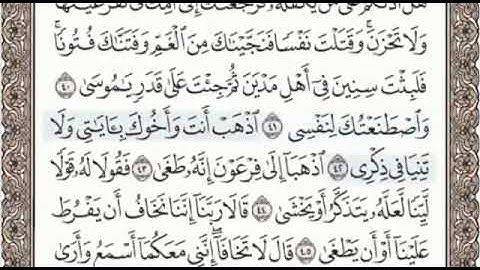 هَلْ أَدُلُّكُمْ عَلَىٰ مَن يَكْفُلُهُۥ فَرَجَعْنَٰكَ إِلَىٰٓ أُمِّكَ كَىْ تَقَرَّ عَيْنُهَا
وَلَا تَحْزَنَ ۚ وَقَتَلْتَ نَفْسًا فَنَجَّيْنَٰكَ مِنَ ٱلْغَمِّ وَفَتَنَّٰكَ فُتُونًا ۚ
فَلَبِثْتَ سِنِينَ فِىٓ أَهْلِ مَدْيَنَ ثُمَّ جِئْتَ عَلَىٰ قَدَرٍ يَٰمُوسَىٰ ٤٠
وَٱصْطَنَعْتُكَ لِنَفْسِى ٤١ ٱذْهَبْ أَنتَ وَأَخُوكَ بِـَٔايَٰتِى وَلَا
تَنِيَا فِى ذِكْرِى ٤٢ ٱذْهَبَآ إِلَىٰ فِرْعَوْنَ إِنَّهُۥ طَغَىٰ ٤٣ فَقُولَا لَهُۥ قَوْلًا
لَّيِّنًا لَّعَلَّهُۥ يَتَذَكَّرُ أَوْ يَخْشَىٰ ٤٤ قَالَا رَبَّنَآ إِنَّنَا نَخَافُ أَن يَفْرُطَ
عَلَيْنَآ أَوْ أَن يَطْغَىٰ ٤٥ قَالَ لَا تَخَافَآ ۖ إِنَّنِى مَعَكُمَآ أَسْمَعُ وَأَرَىٰ